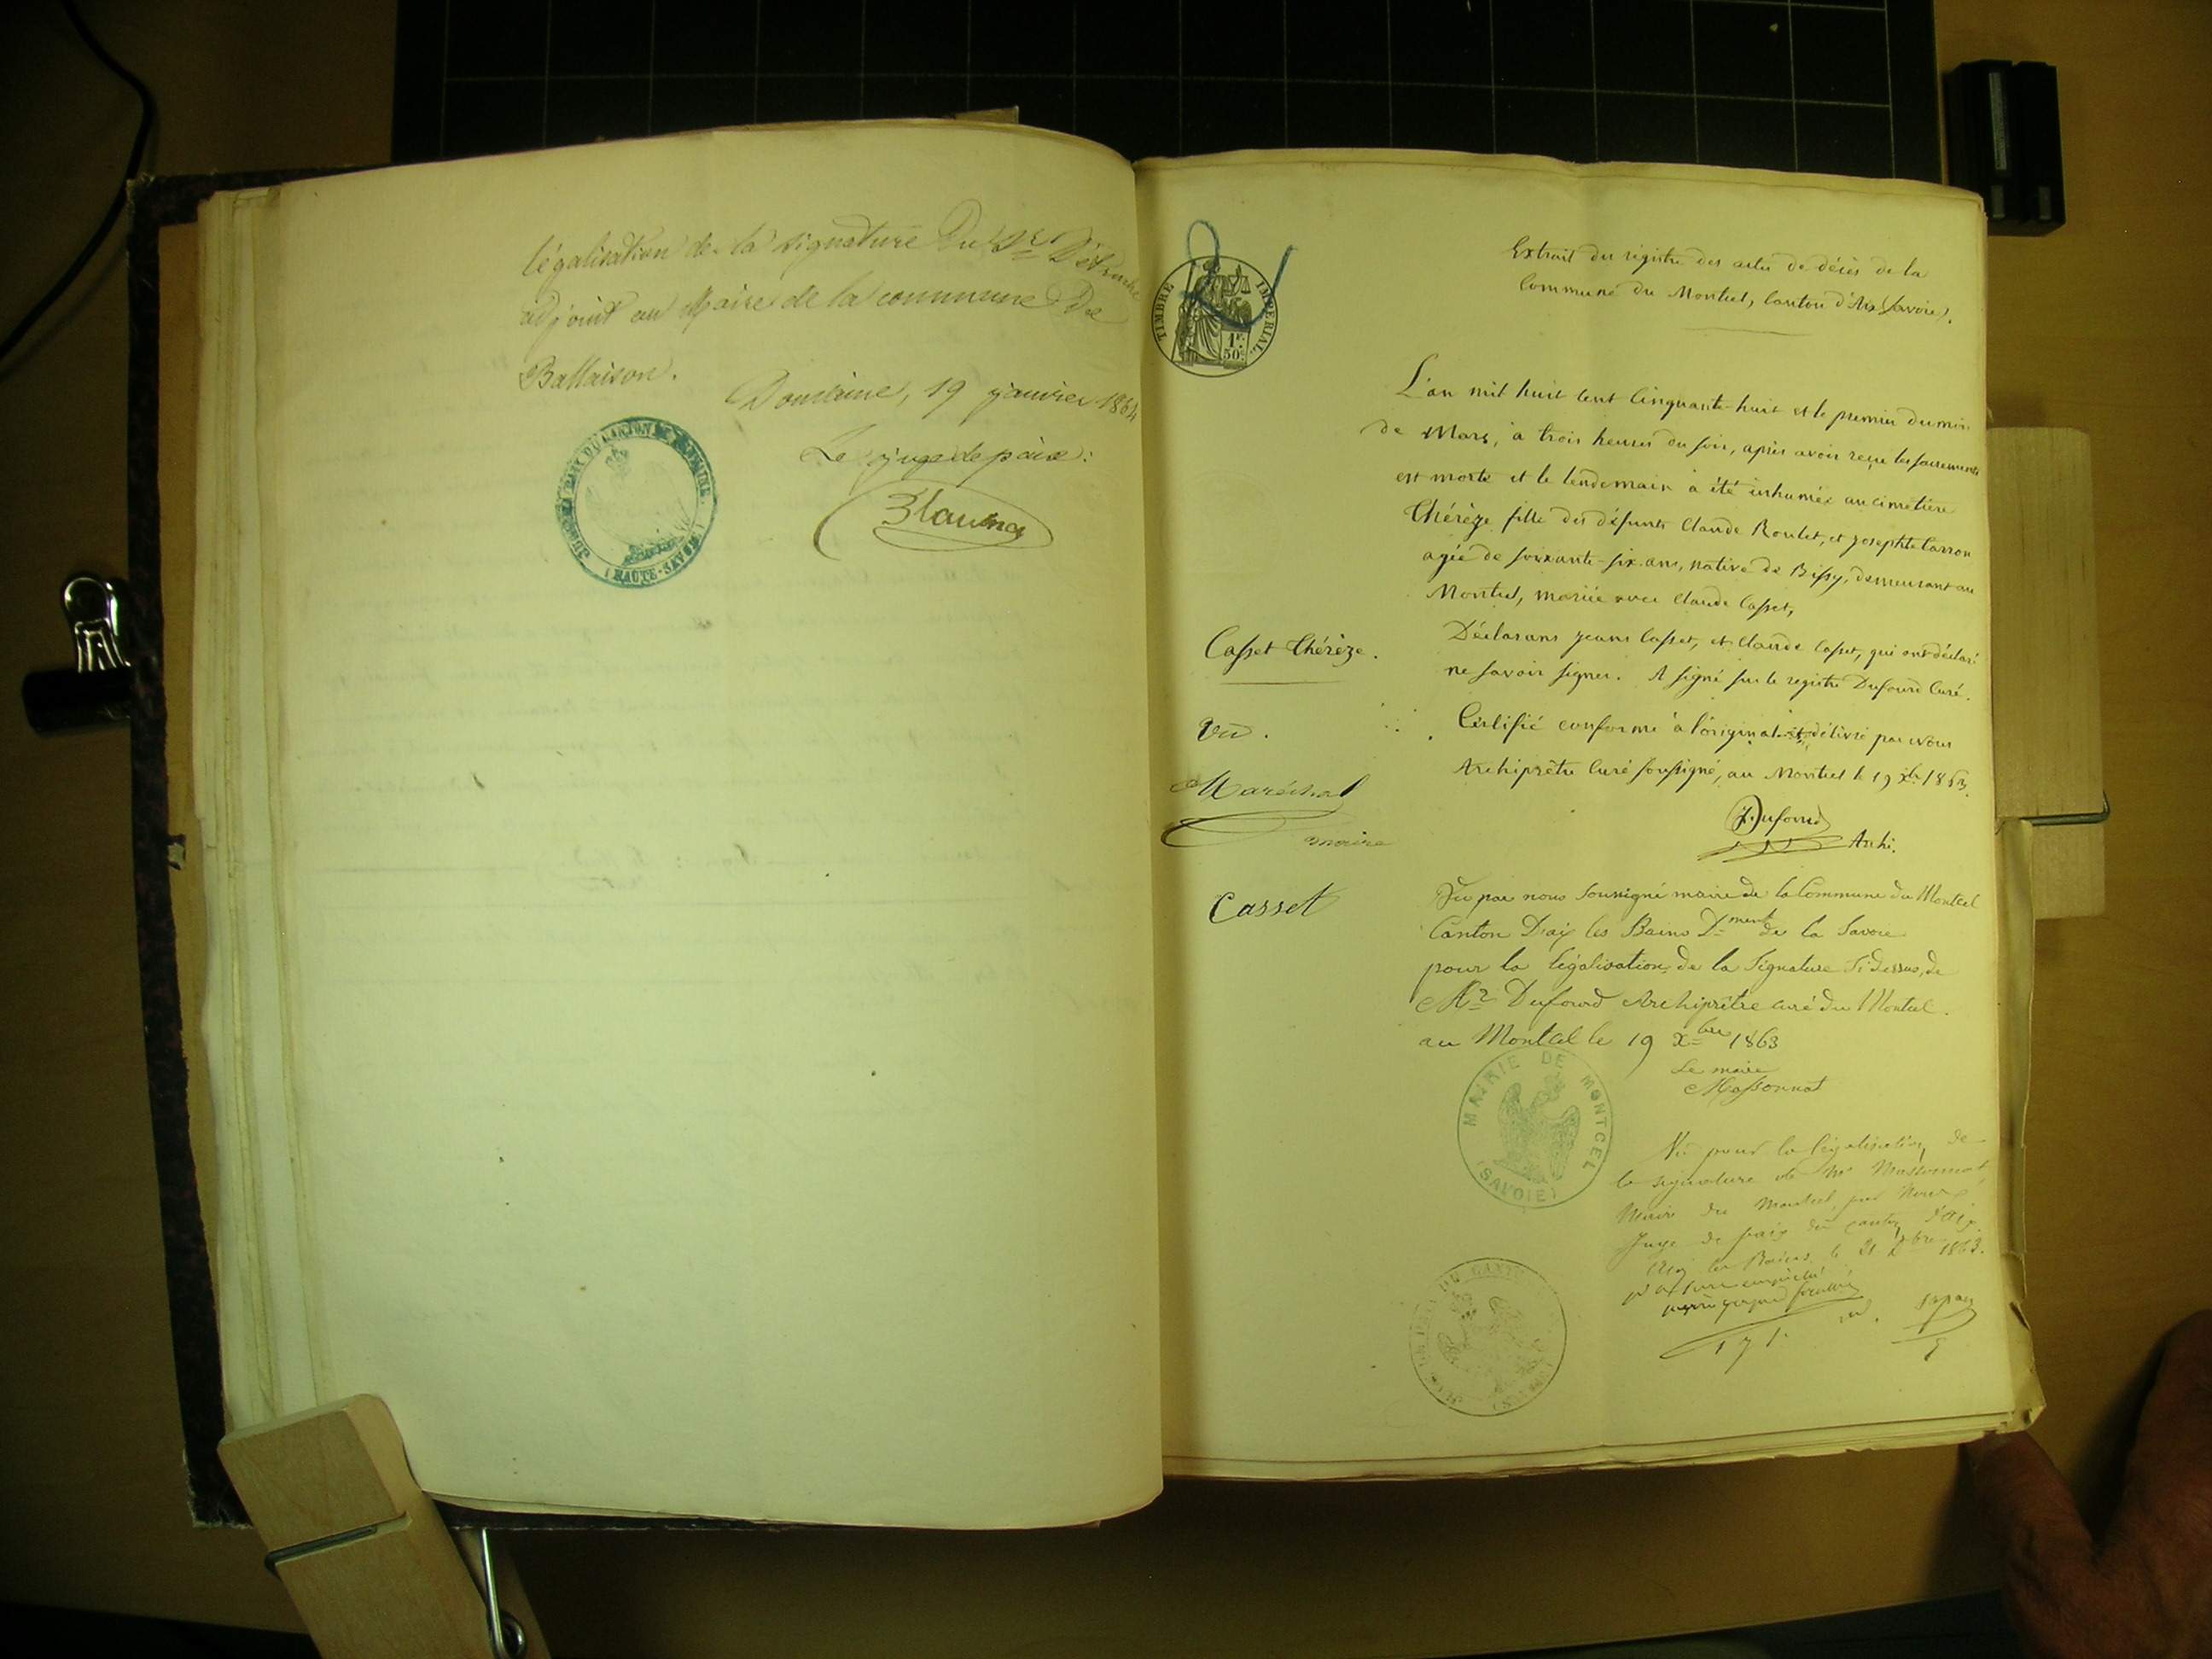 légalisation de la signature du Sr
adjoint au Maire de la commune De
Ballaison.
Douvaine, 19 janvier 1864
Le juge de paix:
HAUTE-SAVOIE
TIMBRE IMPÉRIAL
1F
50C
Extrait du registre des actes de décès de la
Commune du Montcel, Canton d'Aix (Savoie).
L'an mil huit cent cinquante-huit et le premier du mois
de Mars, à trois heures du soir, après avoir reçu les sacrements
est morte et le lendemain a été inhumée au cimetière
Thérèze fille des défunts Claude Roulet, et Josephte Carron
agée de soixante-six ans, native de Bissy, demeurant au
Montcel, mariée avec Claude Casset,
Casset Thérèze.
Déclarans Jean Casset, et Claude Casset, qui ont déclaré
ne savoir signer. A signé sur le registre Dufourd Curé.
Vu.
Certifié conforme à l'original et délivré par nous
Archiprêtre Curé soussigné, au Montcel le 19 xbre 1863.
Maréchal
maire
J. Dufourd
Archi.
Casset
Vu par nous soussigné maire de la Commune du Montcel
Canton D'aix les Bains Dment de la Savoie
pour la légalisation de la Signature Si dessus, de
Mr Dufourd Archiprêtre curé du Montcel.
au Montcel le 19 xbre 1863
Le maire
Massonnat
MAIRIE DE MONTCEL
(SAVOIE)
Vu pour la légalisation de
la signature de Mr Massonnat
Maire du Montcel, par Nous
Juge de paix du canton d'Aix
Aix les Bains le 21 Xbre 1863.